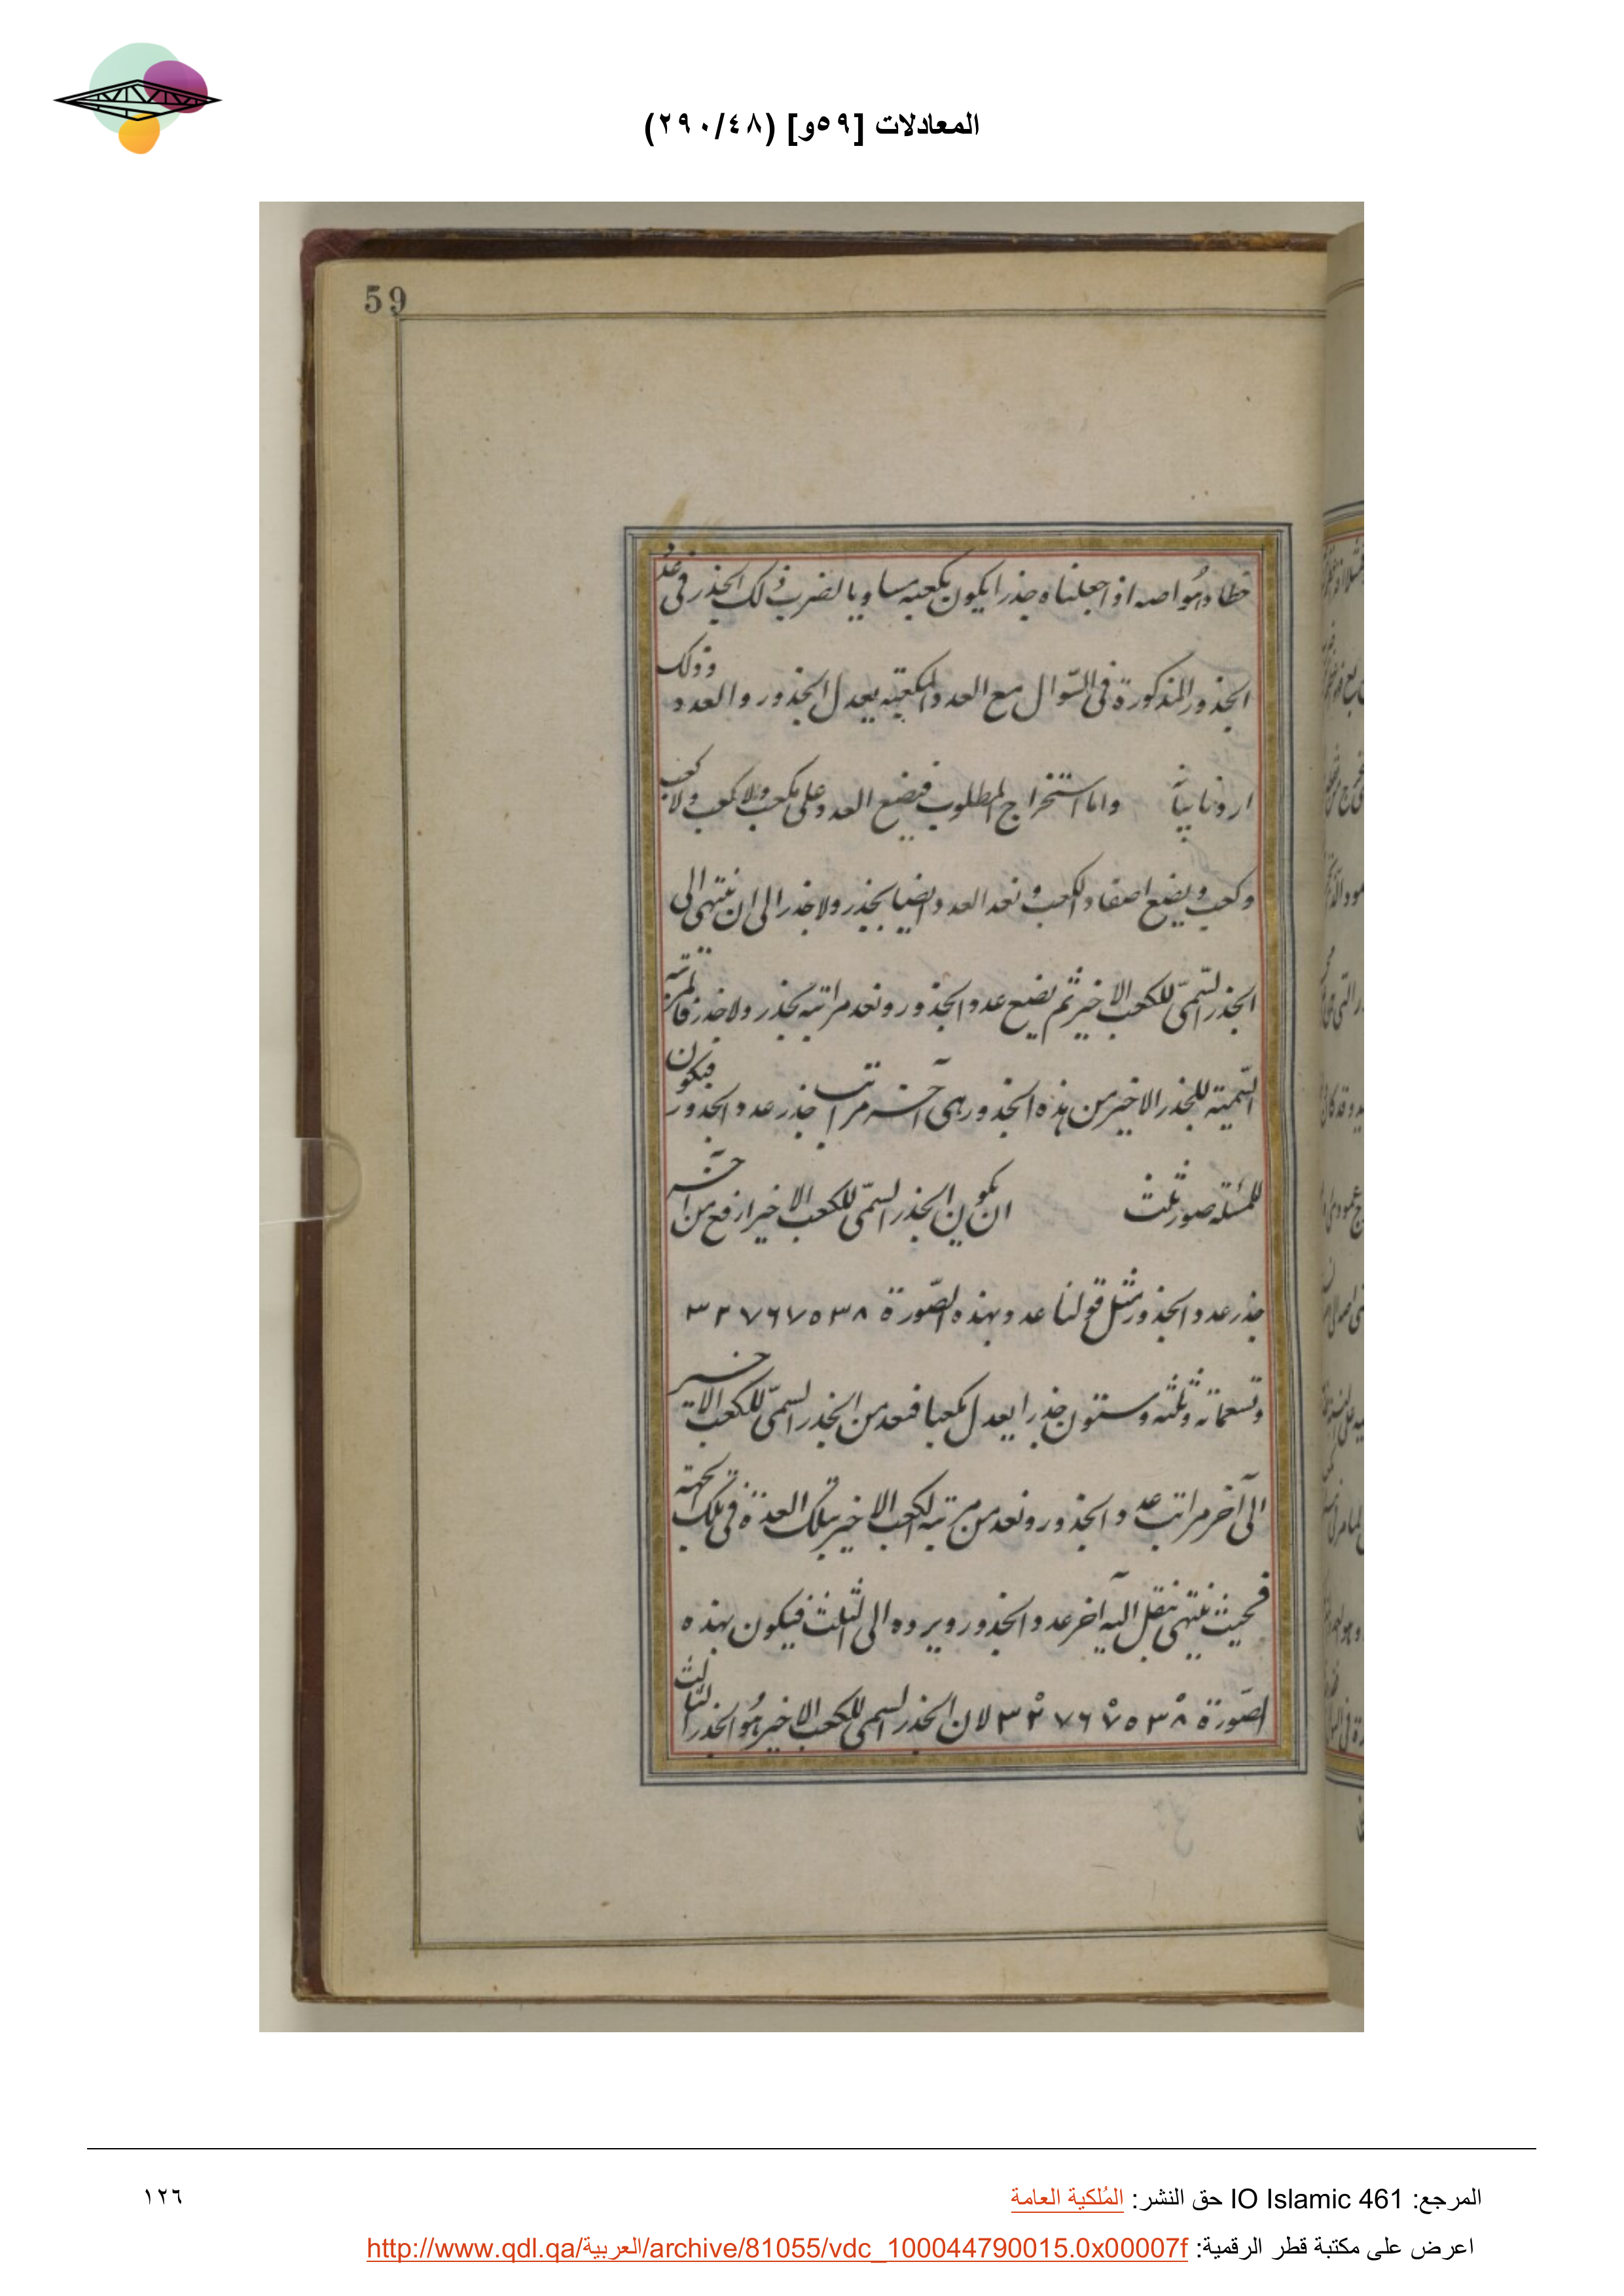 المعادلات [٥٩و] (٢٩٠/٤٨)
59
خطا وهُو اصه اذا جعلناه جذرا يكون مكعبه مساويا لضرب ذلك الجذر فى عدد
الجذور المذكورة فى السّوال مع العدد والمكعبه يعدل الجذور والعدد وذلك
اردنا بيانه واما استخراج المطلوب فيضع العدد على مكعب ولا كعب ولا كعب
وكعب ويضع اصفار الكعب ونعد العدد ايضا بجذر ولا جذر الى ان ينتهى الى
الجذر السّمىّ للكعب الاخير ثم نضع عدد الجذور ونعد مراتبه بجذر ولا جذر فالمرتبة
السّمية للجذر الاخير من هذه الجذور هى آخر مراتب جذر عدد الجذور فيكون
للمسئلة صور ثلث ان يكون الجذر السمّى للكعب الاخير ارفع من آخر
جذر عدد الجذور مثل قولنا عدد بهذه الصّورة ٣٢٧٦٧٥٣٨
وتسعمائة وثلثه وستون جذرا يعدل مكعبا فنعد من الجذر السمىّ للكعب الاخير
الى آخر مراتب عدد الجذور ونعد من مرتبه الكعب الاخير بتلك العدة فى تلك الجهة
فحيث ينتهى ننقل اليه آخر عدد الجذور ويرده الى الثلث فيكون بهذه
الصّورة ٣٢٧٦٧٥٣٨ لان الجذر السمى للكعب الاخير هُو الجذر الثالث
المرجع: IO Islamic 461 حق النشر: المُلكية العامة
١٢٦
اعرض على مكتبة قطر الرقمية: http://www.qdl.qa/العربية/archive/81055/vdc_100044790015.0x00007f